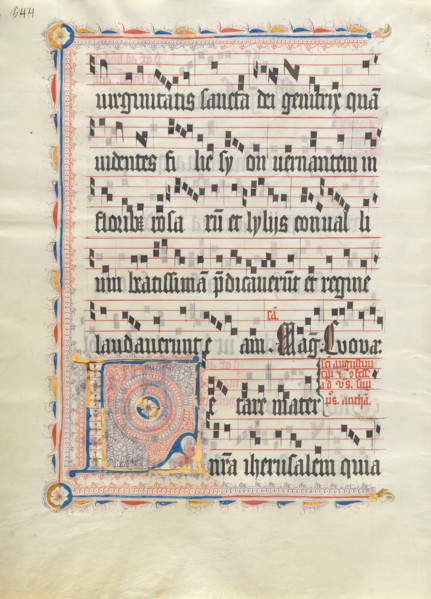 644
uirginitatis sancta dei genitrix quā
uidentes fi lie sy on uernantem in
floribꝫ rosa rū et lylijs conual li
um bēatissimā p̄dicauerūt et regine
laudauerunt e am. Mag. Euouae
cā.
Le tare mater
sc̄i augustini
nr̄a iherusalem quia